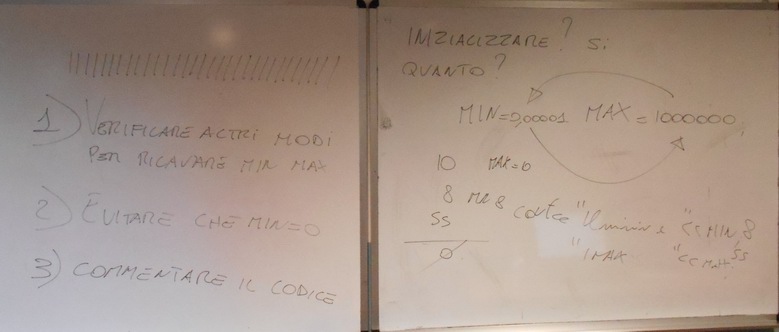 1) VERIFICARE ALTRI MODI
PER RICAVARE MIN MAX
2) EVITARE CHE MIN=0
3) COMMENTARE IL CODICE
INIZIALIZZARE? Si
QUANTO?
MIN=0,00001 MAX=1000000
10 MAX=10
8 MIN 8
55
0
"Il min è "<<MIN 8
"I MAX "<<
55